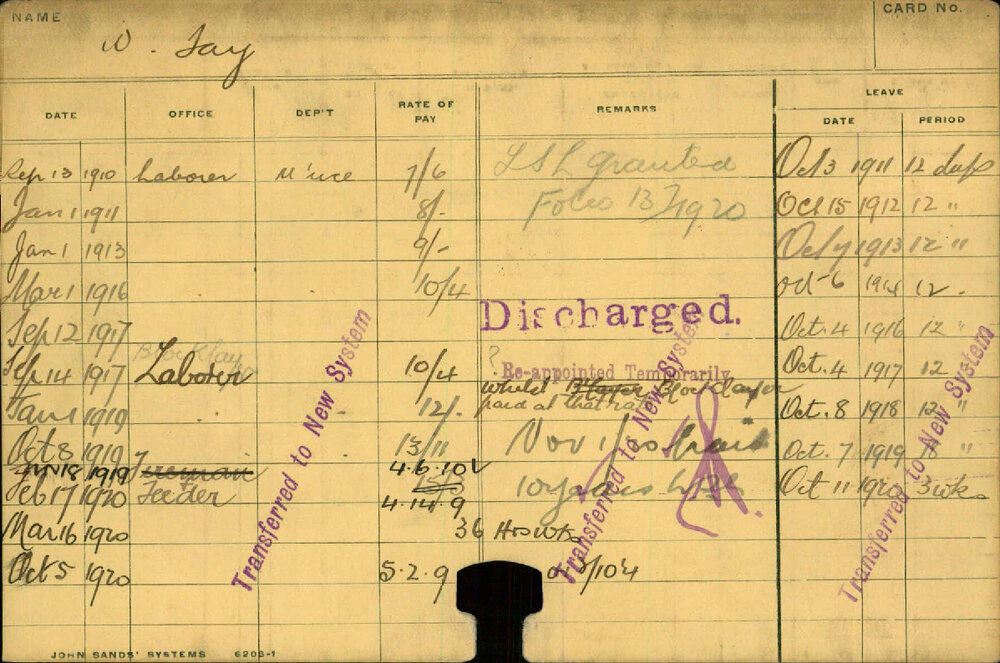 NAME
CARD No.
W. Tay
DATE OFFICE DEP'T RATE OF PAY REMARKS LEAVE
DATE PERIOD
Sep 13 1910 Laborer M'nce 7/6 LSL granted Oct 3 1911 12 days
Jan 1 1911 8/- Folio 13/1920 Oct 15 1912 12 "
Jan 1 1913 9/- Oct 7 1913 12 "
Mar 1 1916 10/4 Oct 6 1914 12 .
Sep 12 1917 Discharged. Oct. 4 1916 12 "
Sep 14 1917 Laborer 10/4 Re-appointed Temporarily Oct. 4 1917 12 "
whilst Blocklayer
paid at that rate
Jan 1 1919 12/- Oct. 8 1918 12 "
Oct 8 1919 13/11 Nov 1/20 Oct. 7 1919 "
JAN 18 1919 Fireman 4.6.10
Feb 17 1920 Feeder 4.14.9 10 years Oct 11 1920 3 wks
Mar 16 1920 36 Hrs wk
Oct 5 1920 5.2.9 /10 4
Transferred to New System
Transferred to New System
Transferred to New System
JOHN SANDS' SYSTEMS 6206-1